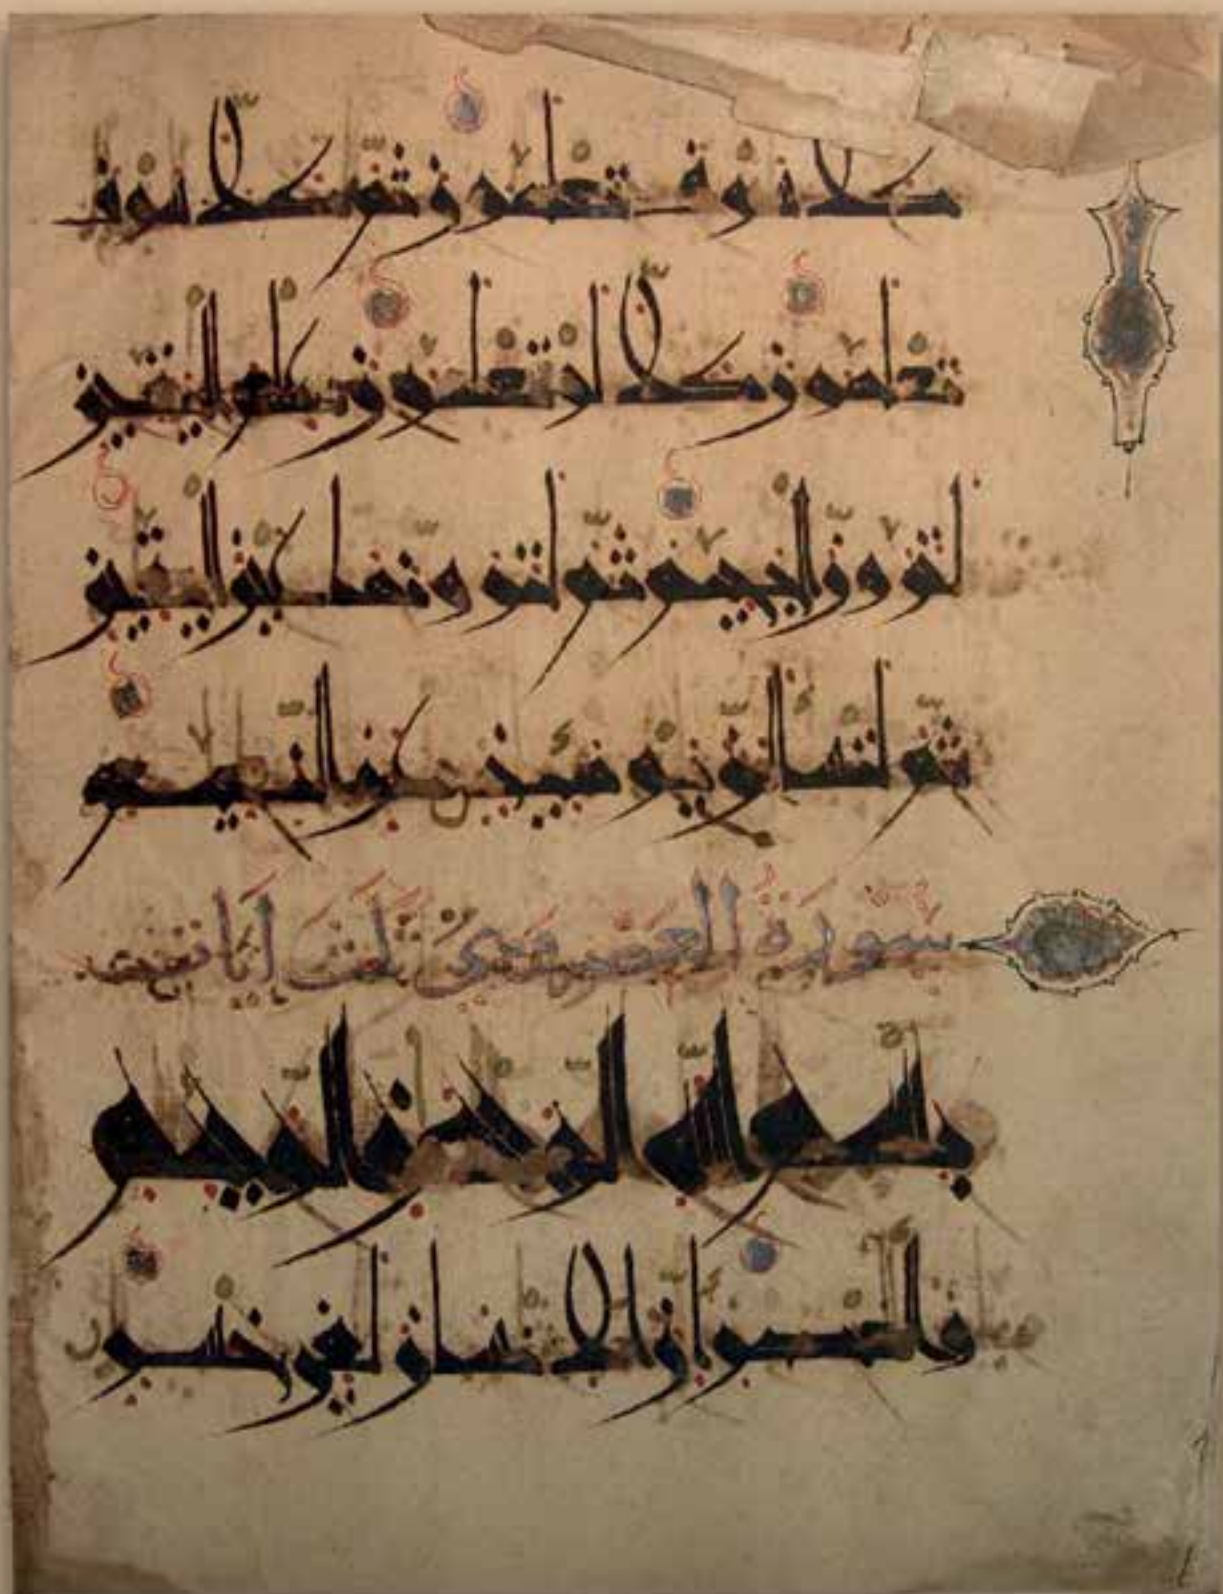 كلا سوف تعلمون ثم كلا سوف
تعلمون كلا لو تعلمون علم اليقين
لترون الجحيم ثم لترونها عين اليقين
ثم لتسالن يومئذ عن النعيم
سورة العصر وهى ثلث ايات
بسم الله الرحمن الرحيم
والعصر ان الانسان لفي خسر